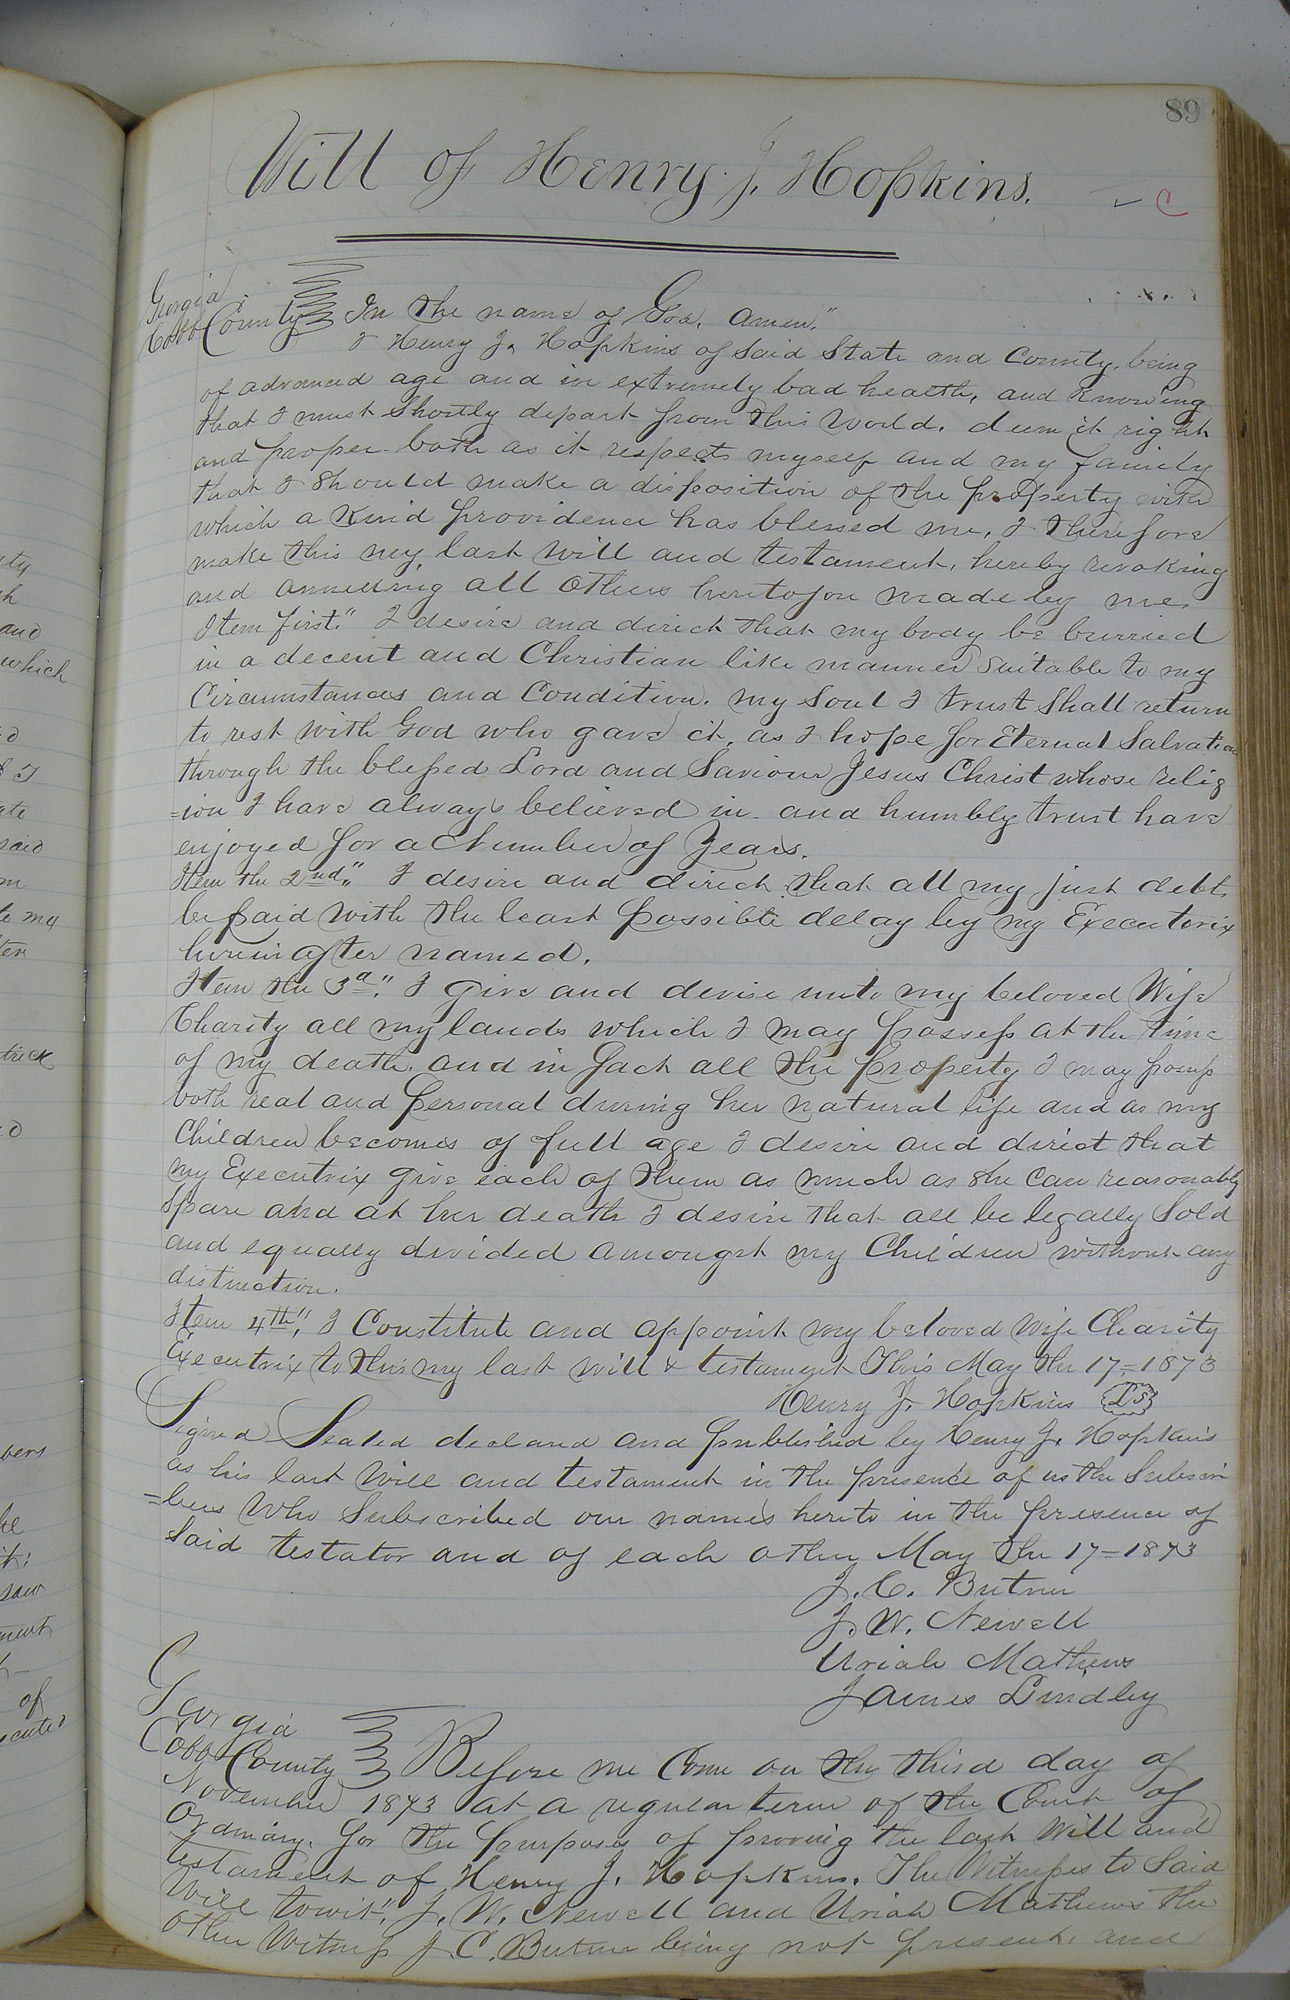 89
Will of Henry J. Hopkins.
C
Georgia
Cobb County In the name of God. Amen."
I Henry J. Hopkins of said State and County, being
of advanced age and in extremely bad health, and knowing
that I must shortly depart from this World. deem it right
and proper both as it respects myself and my family
that I should make a disposition of the property with
which a kind providence has blessed me, I therefore
make this my last will and testament, hereby revoking
and annulling all others heretofore made by me.
Item first." I desire and direct that my body be burried
in a decent and Christian like manner suitable to my
Circumstances and Condition. my Soul I trust Shall return
to rest with God who gave it, as I hope for Eternal Salvation
through the blessed Lord and Saviour Jesus Christ whose relig
=ion I have always believed in and humbly trust have
enjoyed for a Number of Years.
Item the 2nd". I desire and direct that all my just debts
be paid with the least possible delay by my Executorix
hereinafter named.
Item the 3d." I give and devise unto my beloved Wife
Charity all my lands which I may possess at the time
of my death, and in fact all the property I may possess
both real and personal during her natural life and as my
Children becomes of full age I desire and direct that
my Executrix give each of them as much as she can reasonably
spare and at her death I desire that all be legally Sold
and equally divided amongst my Children without any
distinction.
Item 4th", I Constitute and appoint my beloved Wife Charity
Executrix to this my last will & testament This May the 17=1873
Henry J. Hopkins LS
Signed Sealed declared and published by Henry J. Hopkins
as his last Will and testament in the presence of us the Subscri
=bers Who Subscribed our names hereto in the presence of
Said testator and of each other May the 17=1873
J. C. Butner
J. W. Newell
Uriah Mathews
James Lindley
Georgia
Cobb County Before me Come on the third day of
November 1873 at a regular term of the Court of
Ordinary. for the purposes of proving the last Will and
testament of Henry J. Hopkins. The Witnesses to Said
Will towit", J. W. Newell and Uriah Mathews the
other Witness J. C. Butner being not present. and
ty
h
and
which
I
ate
said
to my
bers
saw
of